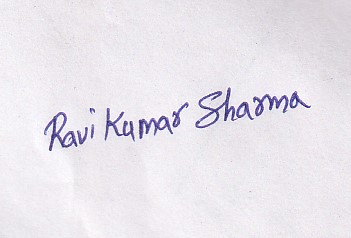 Ravi Kumar Sharma